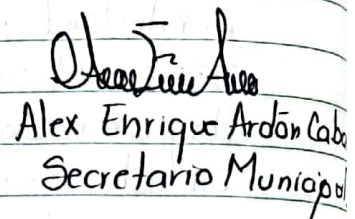 Alex Enrique Ardón Cabo
Secretario Municipal